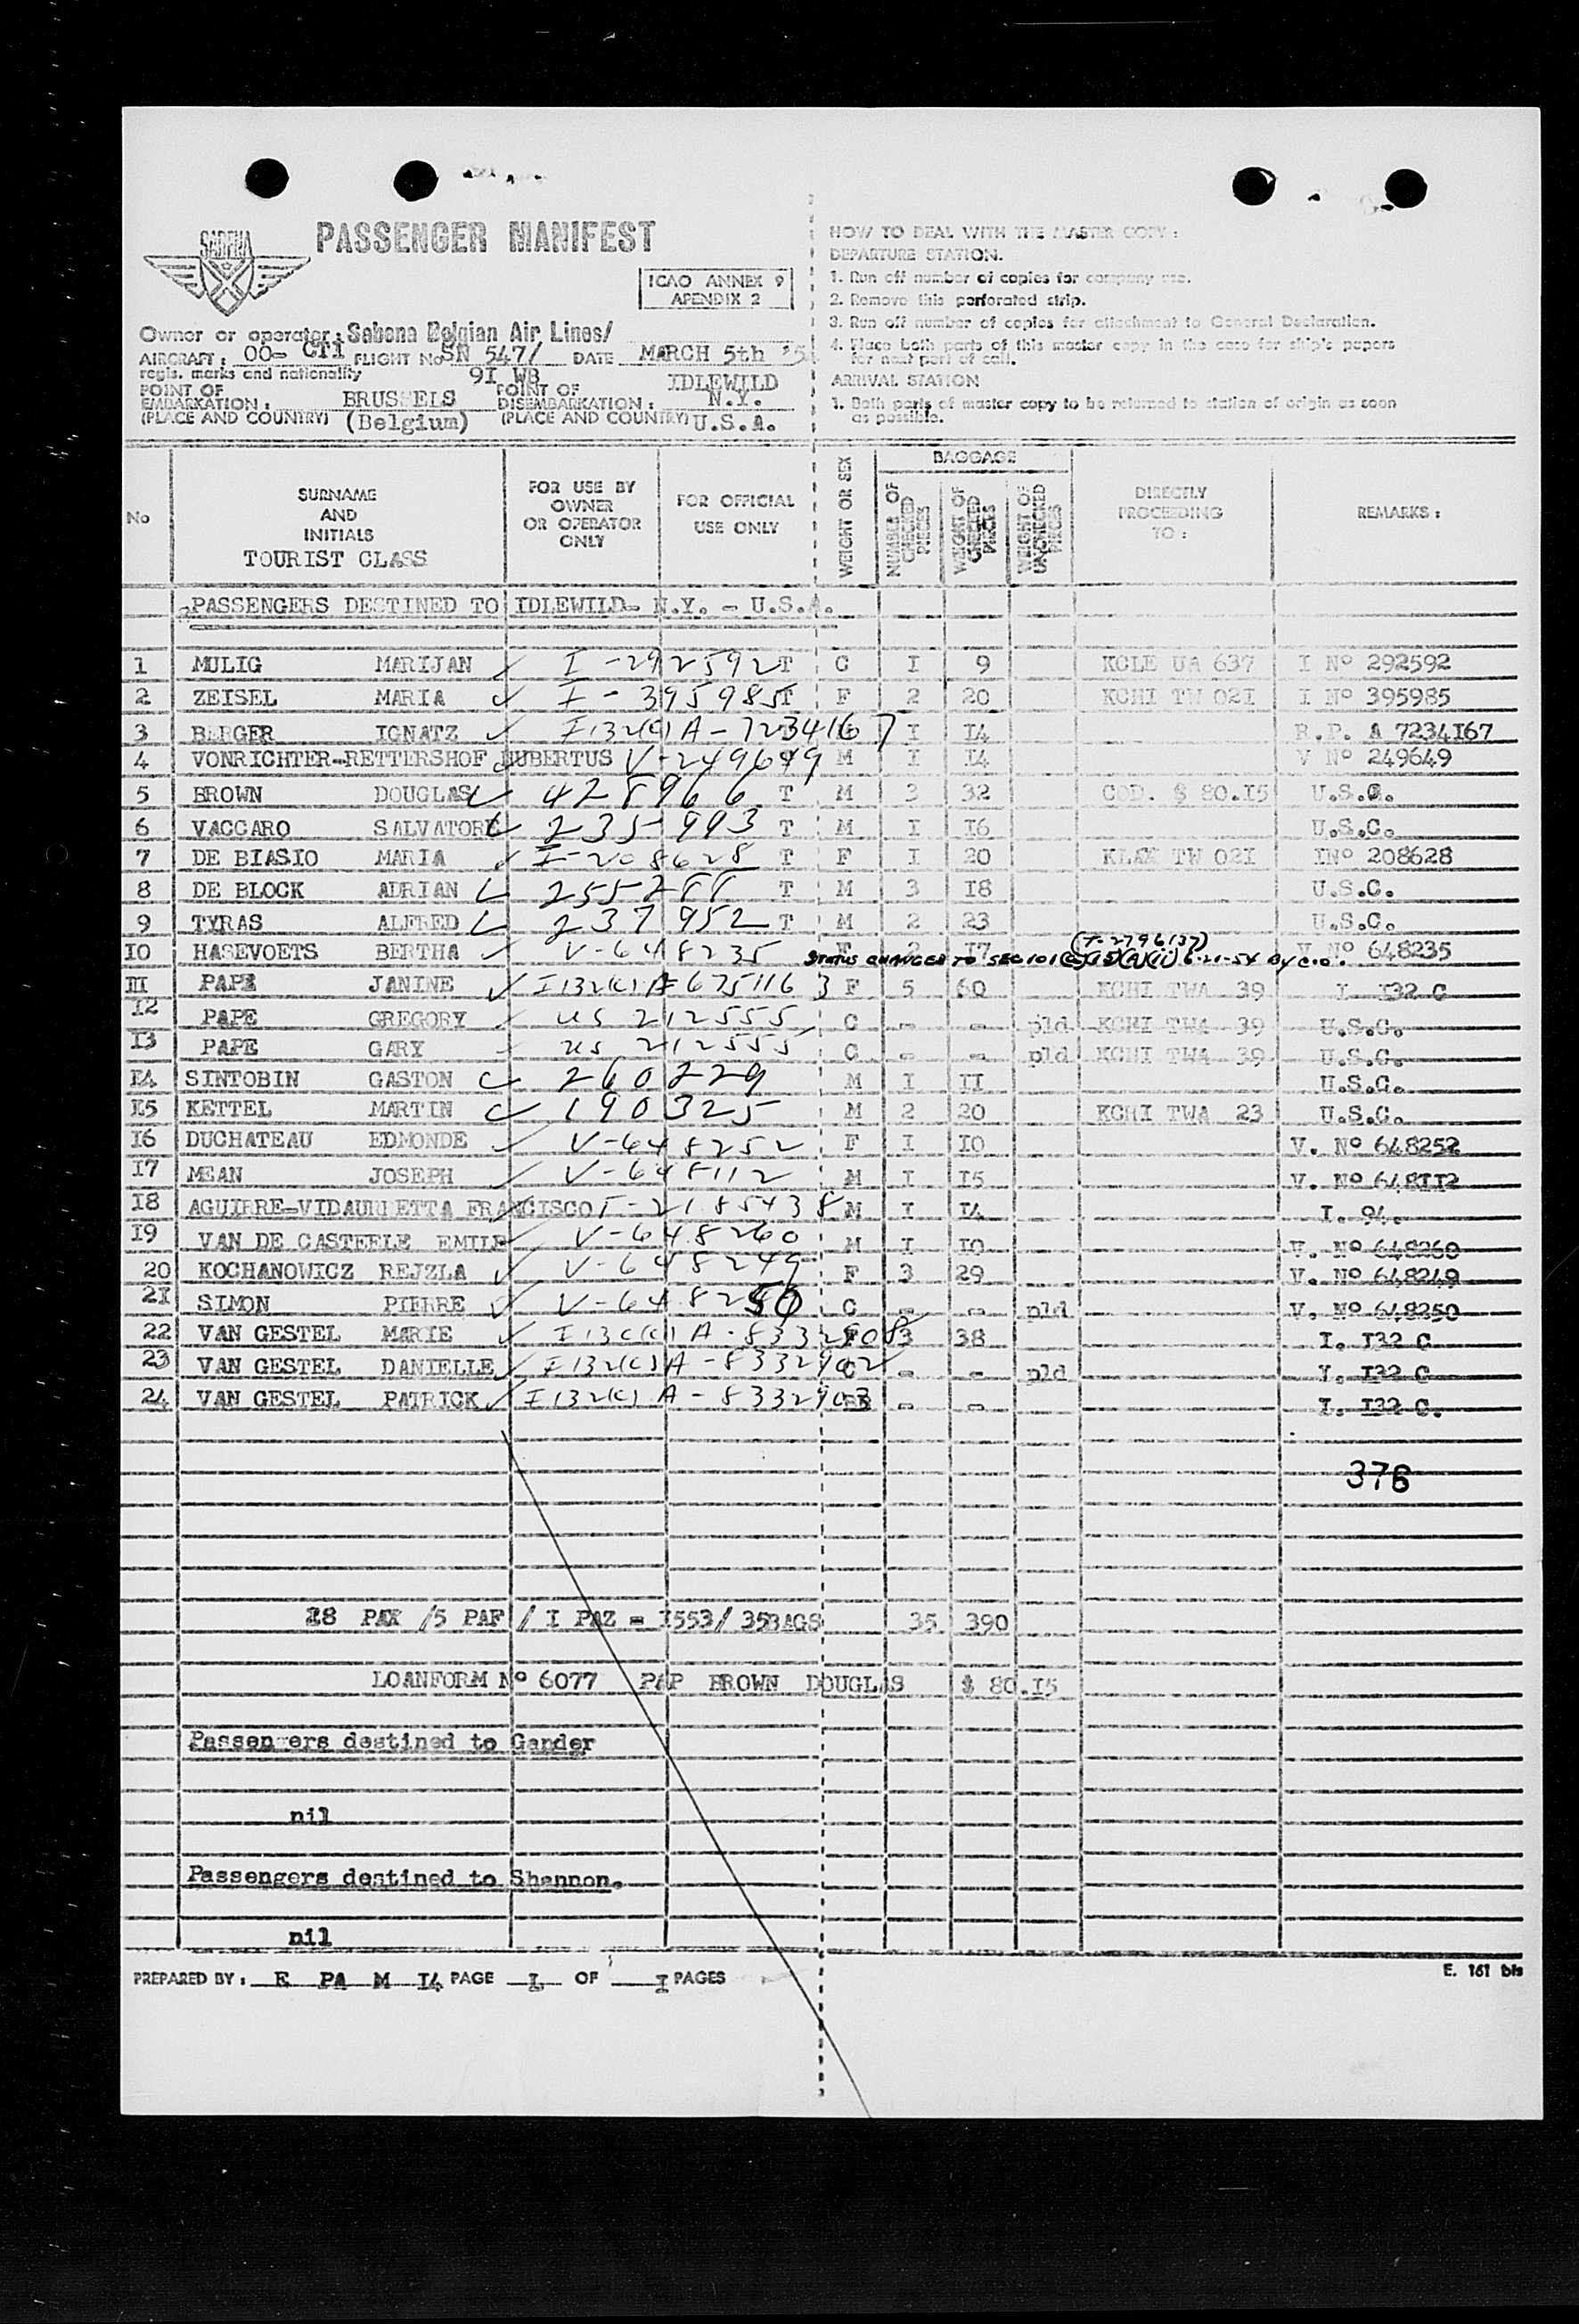 SABENA
PASSENGER MANIFEST
ICAO ANNEX 9
APENDIX 2
Owner or operator: Sabena Belgian Air Lines/
AIRCRAFT: OO- CTI FLIGHT No SN 547/ DATE MARCH 5th
regis. marks and nationality 9I WB
POINT OF EMBARKATION: (PLACE AND COUNTRY) BRUSSELS (Belgium)
POINT OF DISEMBARKATION: (PLACE AND COUNTRY) IDLEWILD N.Y. U.S.A.
HOW TO DEAL WITH THE MASTER COPY:
DEPARTURE STATION.
1. Run off number of copies for company use.
2. Remove this perforated strip.
3. Run off number of copies for attachment to General Declaration.
4. Place both parts of this master copy in the case for ship's papers
for next port of call.
ARRIVAL STATION
1. Both parts of master copy to be returned to station of origin as soon
as possible.
No
SURNAME AND INITIALS
TOURIST CLASS
FOR USE BY OWNER OR OPERATOR ONLY
FOR OFFICIAL USE ONLY
WEIGHT OR SEX
BAGGAGE
NUMBER OF CHECKED PIECES
WEIGHT OF CHECKED PIECES
WEIGHT OF UNCHECKED PIECES
DIRECTLY PROCEEDING TO:
REMARKS:
PASSENGERS DESTINED TO IDLEWILD- N.Y. - U.S.A.
1 MULIG MARIJAN I-292592 T C I 9 KCLE UA 637 I Nº 292592
2 ZEISEL MARIA I-395985 T F 2 20 KCHI TW 02I I Nº 395985
3 BERGER IGNATZ I 132(c) A-7234167 I I4 R.P. A 7234I67
4 VONRICHTER-RETTERSHOF HUBERTUS V-249649 M I I4 V Nº 249649
5 BROWN DOUGLAS 428966 T M 3 32 COD. $ 80.I5 U.S.C.
6 VACCARO SALVATORE 235993 T M I I6 U.S.C.
7 DE BIASIO MARIA I-208628 T F I 20 KLAX TW 02I INº 208628
8 DE BLOCK ADRIAN 255288 T M 3 I8 U.S.C.
9 TYRAS ALFRED 237952 T M 2 23 U.S.C.
IO HASEVOETS BERTHA V-648235 F 2 I7 V Nº 648235
(T-2796137)
STATUS CHANGED TO SEC 101(a)(15)(A)(ii) 6-21-54 By C.O.
II PAPE JANINE I 132(c) A-6751163 F 5 60 KCHI TWA 39 I I32 C
I2 PAPE GREGORY US 212555 C - - pld KCHI TWA 39 U.S.C.
I3 PAPE GARY US 212555 C - - pld KCHI TWA 39 U.S.C.
I4 SINTOBIN GASTON 260229 M I II U.S.C.
I5 KETTEL MARTIN 190325 M 2 20 KCHI TWA 23 U.S.C.
I6 DUCHATEAU EDMONDE V-648252 F I IO V. Nº 648252
I7 MEAN JOSEPH V-648112 M I I5 V. Nº 648II2
I8 AGUIRRE-VIDAURRETTA FRANCISCO T-2185438 M I I4 I. 94.
I9 VAN DE CASTEELE EMILE V-648260 M I IO V. Nº 648260
20 KOCHANOWICZ REJZLA V-648249 F 3 29 V. Nº 648249
2I SIMON PIERRE V-648250 C - - pld V. Nº 648250
22 VAN GESTEL MARIE I 132(c) A-8332908 F 3 38 I. I32 C
23 VAN GESTEL DANIELLE I 132(c) A-8332902 C - - pld I. I32 C
24 VAN GESTEL PATRICK I 132(c) A-8332903 - - I. I32 C.
376
I8 PAX /5 PAF / I PAZ = I553/ 35BAGS 35 390
LOANFORM Nº 6077 PAP BROWN DOUGLAS $ 80.I5
Passengers destined to Gander
nil
Passengers destined to Shannon.
nil
PREPARED BY: E PA M I4 PAGE I OF I PAGES
E. 161 bis